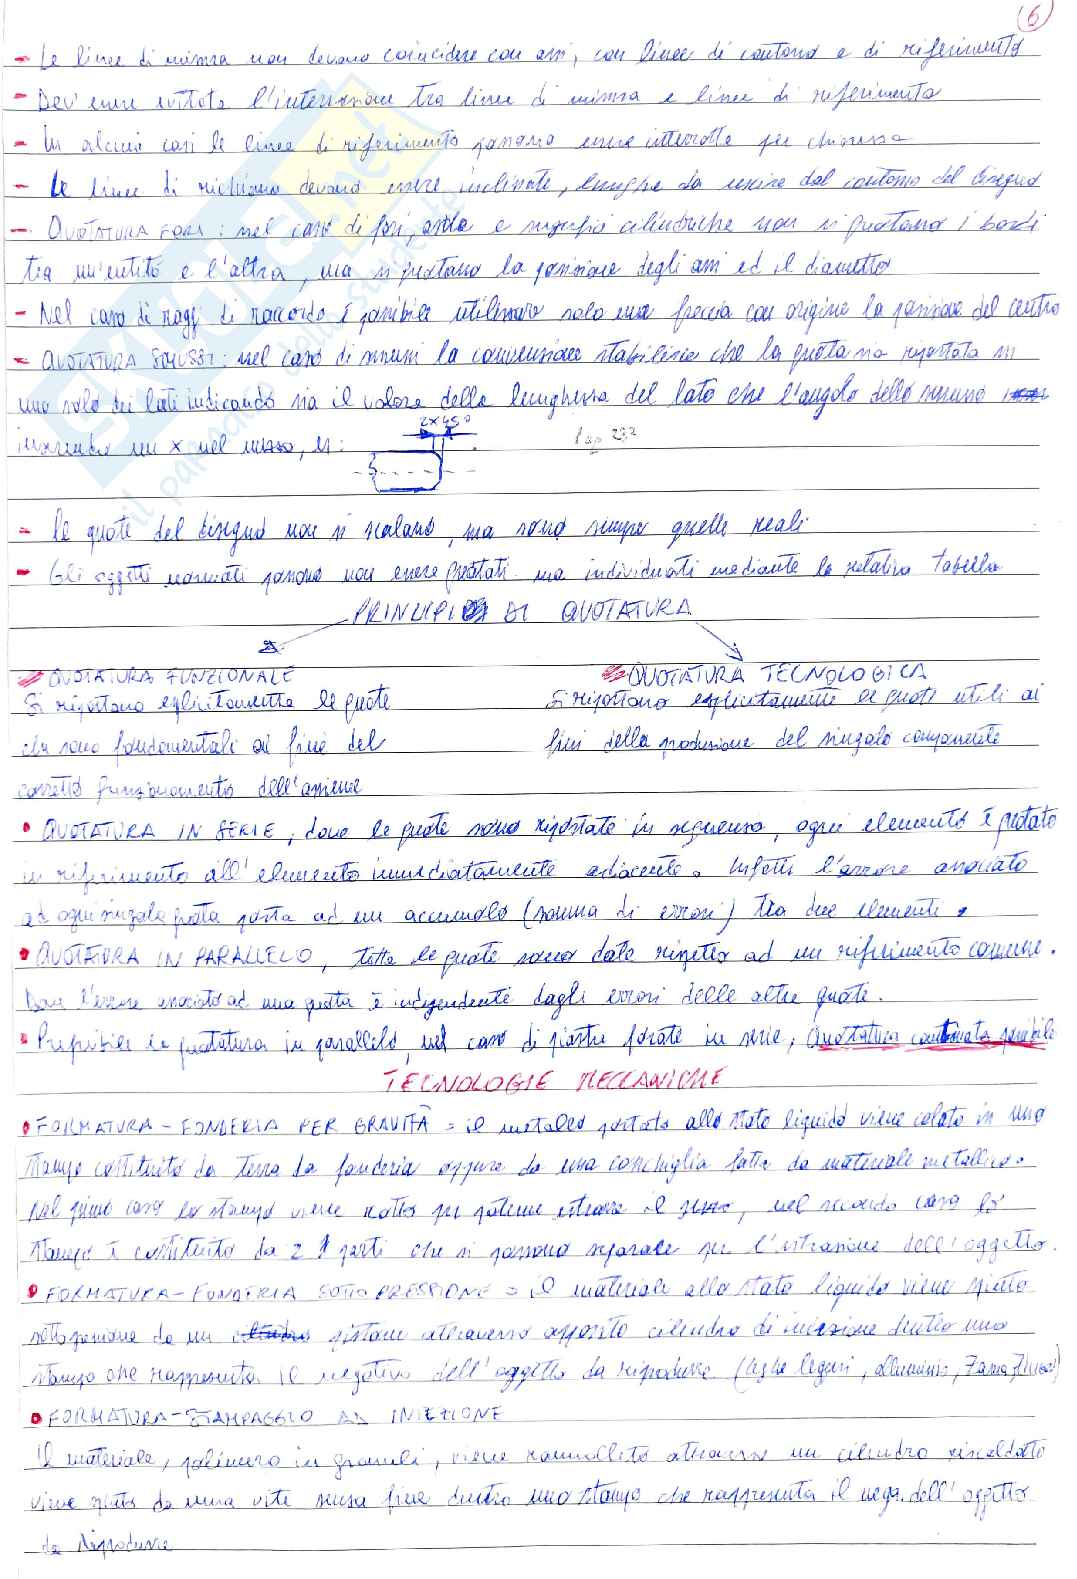 6
- Le linee di misura non devono coincidere con assi, con linee di contorno e di riferimento
- Dev'essere evitata l'intersezione tra linee di misura e linee di riferimento
- In alcuni casi le linee di riferimento possono essere interrotte per chiarezza
- Le linee di richiamo devono essere inclinate, lunghe da uscire dal contorno del disegno
- QUOTATURA FORI: nel caso di fori, asole e superfici cilindriche non si quotano i bordi
tra un'entità e l'altra, ma si quotano la posizione degli assi ed il diametro
- Nel caso di raggi di raccordo è possibile utilizzare solo una freccia con origine la posizione del centro
- QUOTATURA SMUSSI: nel caso di smussi la convenzione stabilisce che la quota sia riportata su
uno solo dei lati indicando sia il valore della lunghezza del lato che l'angolo dello smusso
inserendo un x nel mezzo, es:
2x45°
pag 232
- Le quote del disegno non si scalano, ma sono sempre quelle reali
- Gli oggetti normati possono non essere quotati ma individuati mediante la relativa tabella
PRINCIPI DI QUOTATURA
QUOTATURA FUNZIONALE
Si riportano esplicitamente le quote
che sono fondamentali ai fini del
corretto funzionamento dell'assieme
QUOTATURA TECNOLOGICA
Si riportano esplicitamente le quote utili ai
fini della produzione del singolo componente
• QUOTATURA IN SERIE, dove le quote sono riportate in sequenza, ogni elemento è quotato
in riferimento all'elemento immediatamente adiacente. Infatti l'errore associato
ad ogni singola quota porta ad un accumulo (somma di errori) tra due elementi.
• QUOTATURA IN PARALLELO, tutte le quote sono date rispetto ad un riferimento comune.
Dove l'errore associato ad una quota è indipendente dagli errori delle altre quote.
• Preferibile la quotatura in parallelo, nel caso di piastre forate in serie, Quotatura combinata possibile
TECNOLOGIE MECCANICHE
• FORMATURA - FONDERIA PER GRAVITÀ = il metallo portato allo stato liquido viene colato in uno
stampo costituito da terra da fonderia oppure da una conchiglia fatta da materiale metallico.
Nel primo caso lo stampo viene rotto per poterne estrarre il pezzo, nel secondo caso lo
stampo è costituito da 2 parti che si possono separare per l'estrazione dell'oggetto.
• FORMATURA - FONDERIA SOTTO PRESSIONE = il materiale allo stato liquido viene spinto
sotto pressione da un pistone attraverso apposito cilindro di iniezione dentro uno
stampo che rappresenta il negativo dell'oggetto da riprodurre (leghe leggeri, alluminio, Zama
• FORMATURA - STAMPAGGIO AD INIEZIONE
Il materiale, polimero in granuli, viene rammollito attraverso un cilindro riscaldato
viene spinto da una vite senza fine dentro uno stampo che rappresenta il nega. dell'oggetto
da riprodurre